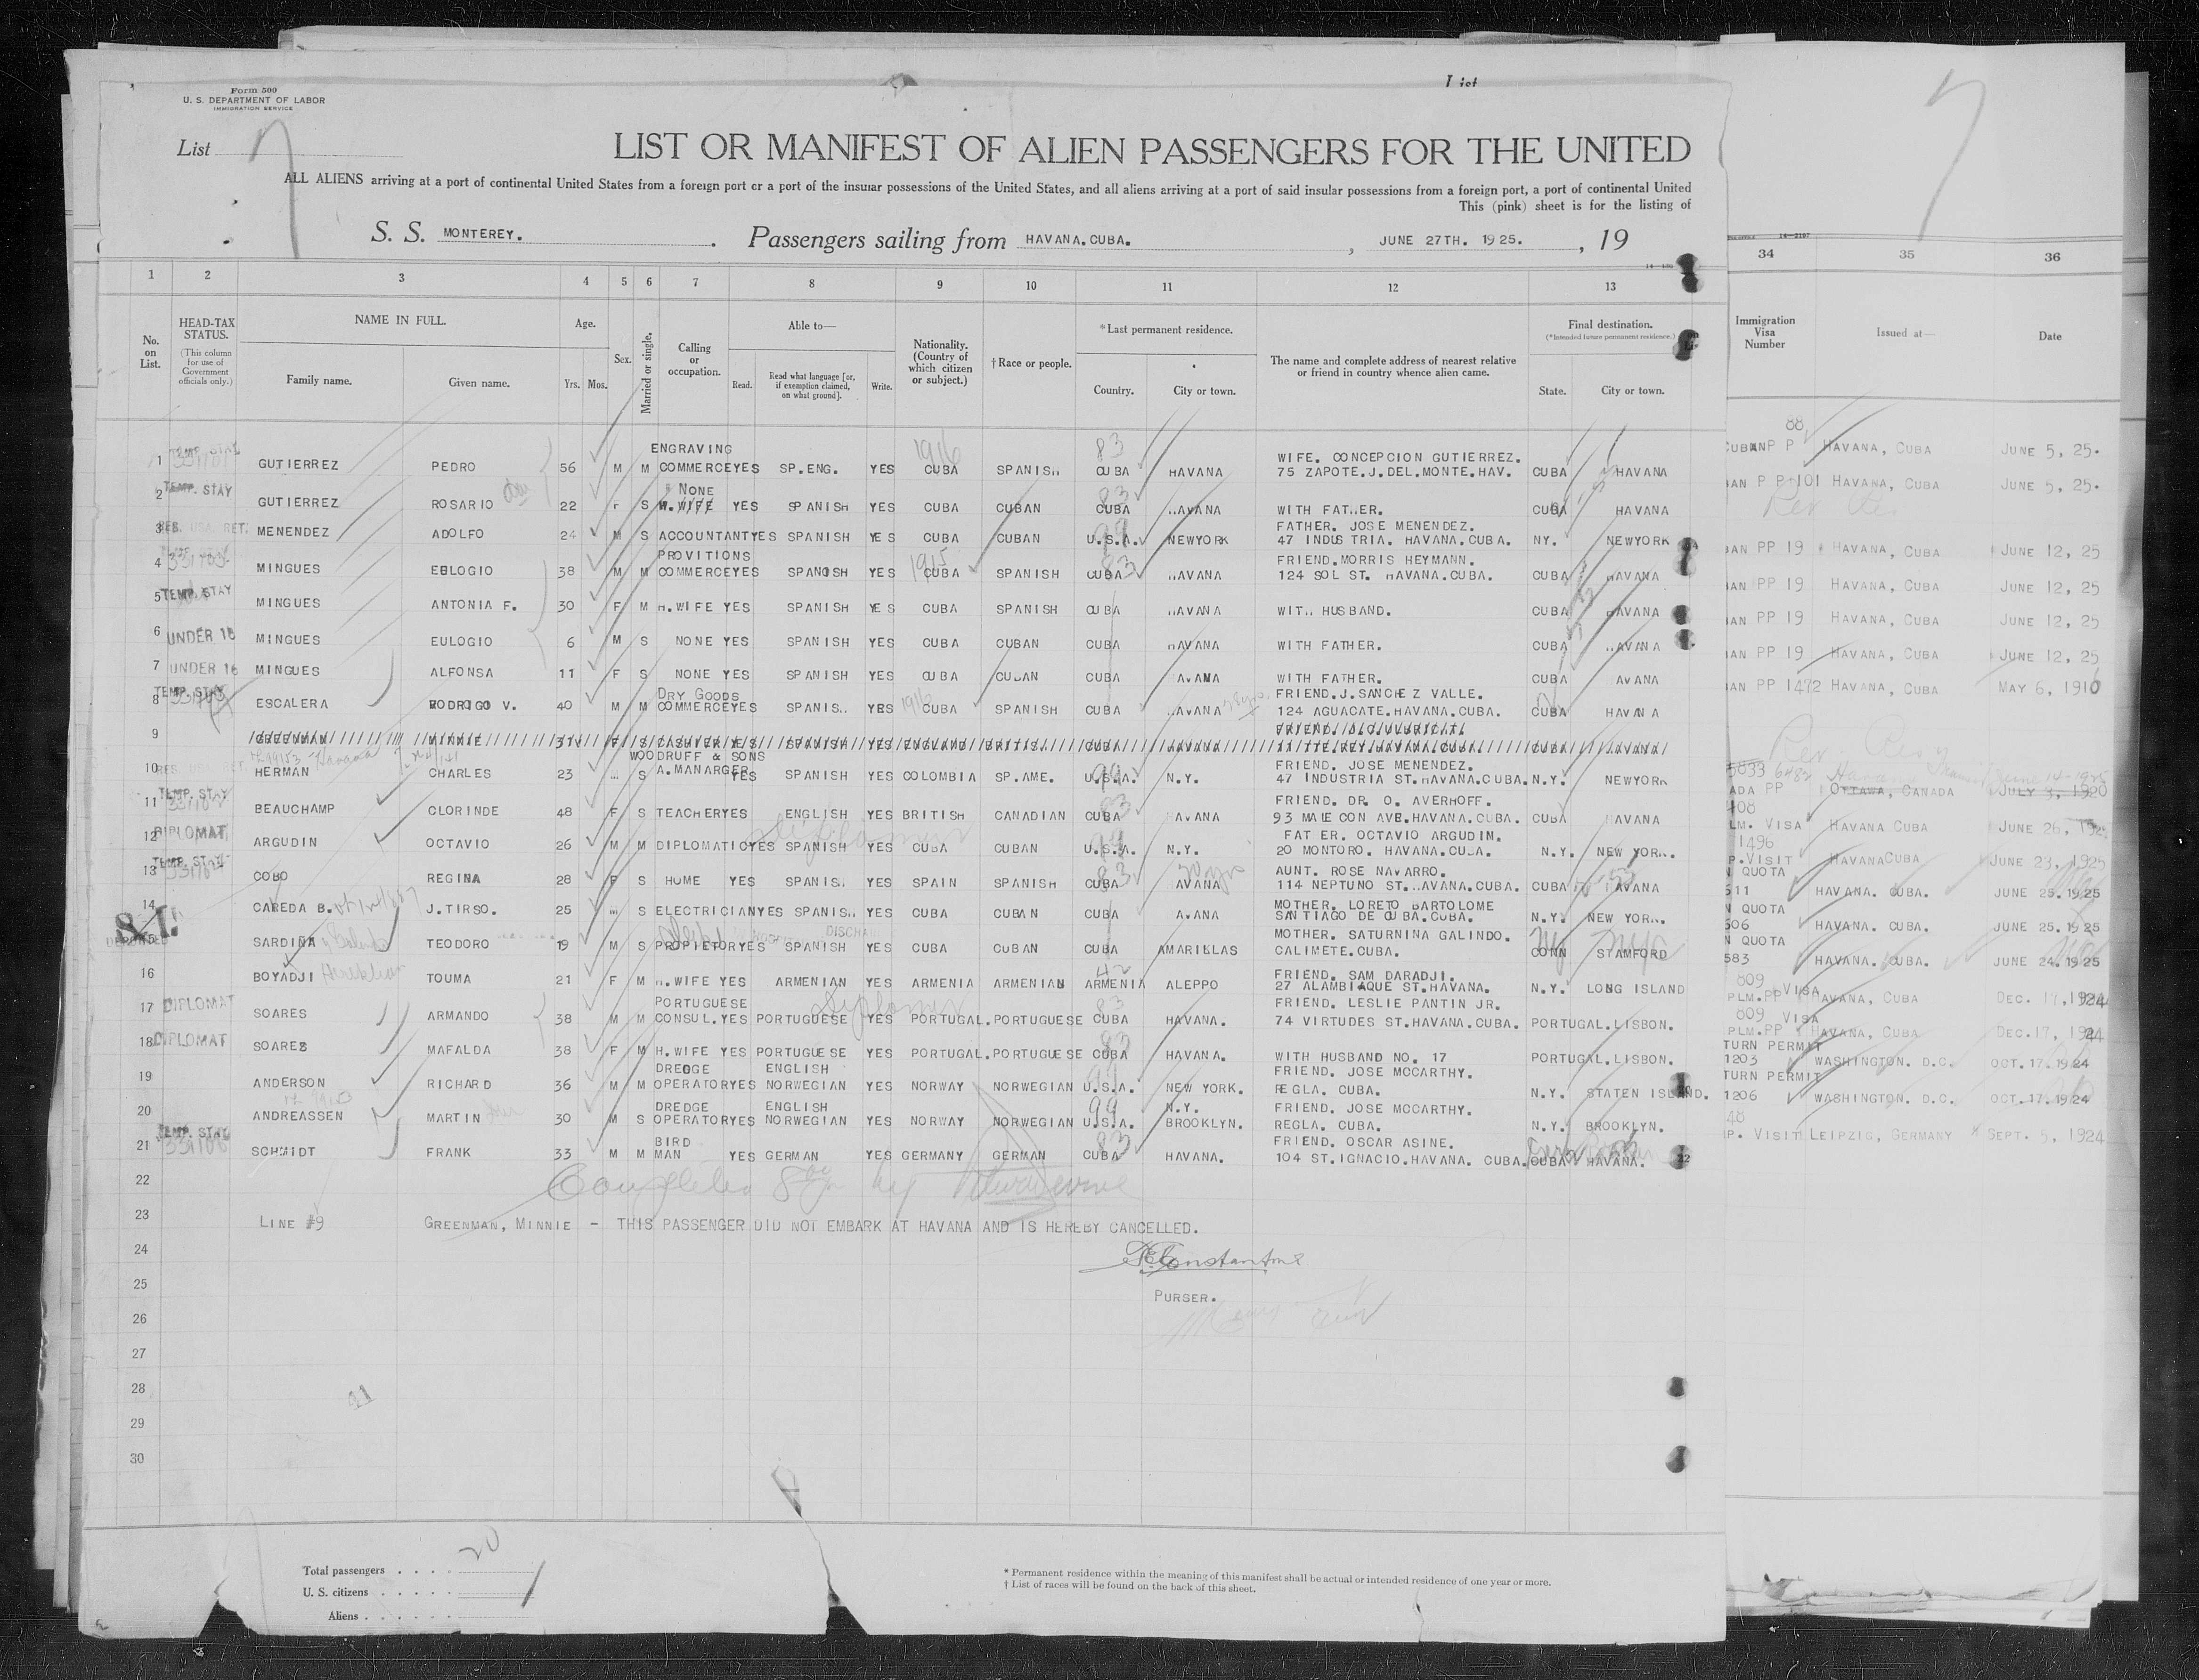 Form 500
U. S. DEPARTMENT OF LABOR
IMMIGRATION SERVICE
List
List 7
7
LIST OR MANIFEST OF ALIEN PASSENGERS FOR THE UNITED
ALL ALIENS arriving at a port of continental United States from a foreign port or a port of the insular possessions of the United States, and all aliens arriving at a port of said insular possessions from a foreign port, a port of continental United
This (pink) sheet is for the listing of
S. S. MONTEREY. Passengers sailing from HAVANA.CUBA. , JUNE 27TH. 1925. , 19
1 2 3 4 5 6 7 8 9 10 11 12 13 34 35 36
No. on List.
HEAD-TAX STATUS.
(This column for use of Government officials only.)
NAME IN FULL.
Family name. Given name.
Age.
Yrs. Mos.
Sex.
Married or single.
Calling or occupation.
Able to—
Read. Read what language [or, if exemption claimed, on what ground]. Write.
Nationality. (Country of which citizen or subject.)
† Race or people.
* Last permanent residence.
Country. City or town.
The name and complete address of nearest relative or friend in country whence alien came.
Final destination.
(*Intended future permanent residence.)
State. City or town.
Immigration Visa Number
Issued at—
Date
ENGRAVING 1916 83 WIFE. CONCEPCION GUTIERREZ. 88
1 GUTIERREZ PEDRO 56 M M COMMERCEYES SP.ENG. YES CUBA SPANISH CUBA HAVANA 75 ZAPOTE.J.DEL.MONTE.HAV. CUBA HAVANA P P HAVANA, CUBA JUNE 5, 25.
TEMP. STAY NONE 83
2 GUTIERREZ ROSARIO 22 F S H.WIFE YES SPANISH YES CUBA CUBAN CUBA HAVANA WITH FATHER. CUBA HAVANA AN P P 101 HAVANA, CUBA JUNE 5, 25.
RES. USA. RET. FATHER. JOSE MENENDEZ.
3 MENENDEZ ADOLFO 24 M S ACCOUNTANTYES SPANISH YES CUBA CUBAN U.S.A. NEWYORK 47 INDUSTRIA. HAVANA.CUBA. NY. NEWYORK AN PP 19 HAVANA, CUBA JUNE 12, 25
PROVITIONS 1915 83 FRIEND.MORRIS HEYMANN.
4 MINGUES EBLOGIO 38 M M COMMERCEYES SPANOSH YES CUBA SPANISH CUBA HAVANA 124 SOL ST. HAVANA.CUBA. CUBA HAVANA AN PP 19 HAVANA, CUBA JUNE 12, 25
5 TEMP. STAY MINGUES ANTONIA F. 30 F M H.WIFE YES SPANISH YES CUBA SPANISH CUBA HAVANA WITH HUSBAND. CUBA HAVANA AN PP 19 HAVANA, CUBA JUNE 12, 25
6 UNDER 16 MINGUES EULOGIO 6 M S NONE YES SPANISH YES CUBA CUBAN CUBA HAVANA WITH FATHER. CUBA HAVANA AN PP 19 HAVANA, CUBA JUNE 12, 25
7 UNDER 16 MINGUES ALFONSA 11 F S NONE YES SPANISH YES CUBA CUBAN CUBA AVANA WITH FATHER. CUBA AVANA AN PP 1472 HAVANA, CUBA MAY 6, 1916
TEMP. STAY DRY GOODS FRIEND.J.SANCHEZ VALLE.
8 ESCALERA RODRIGO V. 40 M M COMMERCEYES SPANIS. YES 1916 CUBA SPANISH CUBA HAVANA 124 AGUACATE.HAVANA.CUBA. CUBA HAVANA
9 GREENMAN MINNIE F S CASHIER YES SPANISH YES ENGLAND BRITISH CUBA HAVANA HAVANA.CUBA. CUBA HAVANA
RES. USA. RET. WOODRUFF & SONS FRIEND. JOSE MENENDEZ.
10 HERMAN CHARLES 23 S A.MANARGER YES SPANISH YES COLOMBIA SP.AME. U.S.A. N.Y. 47 INDUSTRIA ST.HAVANA.CUBA.N.Y. NEWYORK ADA PP OTTAWA, CANADA JULY 3, 1920
TEMP. STAY FRIEND. DR. O. AVERHOFF. 408
11 BEAUCHAMP CLORINDE 48 F S TEACHERYES ENGLISH YES BRITISH CANADIAN CUBA HAVANA 93 MALECON AVE.HAVANA.CUBA. CUBA HAVANA LM. VISA HAVANA CUBA JUNE 26,
DIPLOMAT FAT ER. OCTAVIO ARGUDIN. 1496
12 ARGUDIN OCTAVIO 26 M M DIPLOMATICYES SPANISH YES CUBA CUBAN U.S.A. N.Y. 20 MONTORO. HAVANA.CUBA. N.Y. NEW YORK. P.VISIT HAVANACUBA JUNE 23, 1925
TEMP. STAY 83 AUNT. ROSE NAVARRO. N QUOTA
13 COBO REGINA 28 F S HOME YES SPANIS. YES SPAIN SPANISH CUBA AVANA 114 NEPTUNO ST.HAVANA.CUBA. CUBA HAVANA 511 HAVANA. CUBA. JUNE 25.1925
MOTHER. LORETO BARTOLOME N QUOTA
14 CAREDA B. J.TIRSO. 25 S ELECTRICIANYES SPANIS. YES CUBA CUBAN CUBA AVANA SANTIAGO DE CUBA.CUBA. N.Y. NEW YORK. 506 HAVANA. CUBA. JUNE 25.1925
S.I. MOTHER. SATURNINA GALINDO. N QUOTA
15 SARDIÑA y Galindo TEODORO 19 M S PROPIETORYES SPANISH YES CUBA CUBAN CUBA AMARILLAS CALIMETE.CUBA. CONN STAMFORD 583 HAVANA. CUBA. JUNE 24.1925
42 FRIEND. SAM DARADJI. 809 VISA
16 BOYADJI TOUMA 21 F M H.WIFE YES ARMENIAN YES ARMENIA ARMENIAN ARMENIA ALEPPO 27 ALAMBIAQUE ST.HAVANA. N.Y. LONG ISLAND PLM.PP HAVANA, CUBA DEC. 17, 1924
DIPLOMAT PORTUGUESE Diplomat 83 FRIEND. LESLIE PANTIN JR. 809 VISA
17 SOARES ARMANDO 38 M M CONSUL.YES PORTUGUESE YES PORTUGAL.PORTUGUESE CUBA HAVANA. 74 VIRTUDES ST.HAVANA.CUBA. PORTUGAL.LISBON. PLM.PP HAVANA, CUBA DEC.17, 1924
DIPLOMAT 83 TURN PERMIT
18 SOARES MAFALDA 38 F M H.WIFE YES PORTUGUESE YES PORTUGAL.PORTUGUESE CUBA HAVANA. WITH HUSBAND NO. 17 PORTUGAL.LISBON. 1203 WASHINGTON. D.C. OCT.17.1924
DREDGE ENGLISH 99 FRIEND. JOSE MCCARTHY. TURN PERMIT
19 ANDERSON RICHARD 36 M M OPERATORYES NORWEGIAN YES NORWAY NORWEGIAN U.S.A. NEW YORK. REGLA. CUBA. N.Y. STATEN ISLAND. 1206 WASHINGTON. D.C. OCT.17.1924
DREDGE ENGLISH 99 N.Y. FRIEND. JOSE MCCARTHY. 48
20 ANDREASSEN MARTIN 30 M S OPERATORYES NORWEGIAN YES NORWAY NORWEGIAN U.S.A. BROOKLYN. REGLA. CUBA. N.Y. BROOKLYN. P. VISIT LEIPZIG, GERMANY SEPT. 5, 1924
TEMP. STAY BIRD 83 FRIEND. OSCAR ASINE.
21 SCHMIDT FRANK 33 M M MAN YES GERMAN YES GERMANY GERMAN CUBA HAVANA. 104 ST.IGNACIO.HAVANA. CUBA. CUBA HAVANA.
22 Completed by
23 LINE #9 GREENMAN, MINNIE - THIS PASSENGER DID NOT EMBARK AT HAVANA AND IS HEREBY CANCELLED.
24
25 PURSER.
26
27
28
29
30
Total passengers . . . . 20
U. S. citizens . . . . .
Aliens . . . . . .
* Permanent residence within the meaning of this manifest shall be actual or intended residence of one year or more.
† List of races will be found on the back of this sheet.